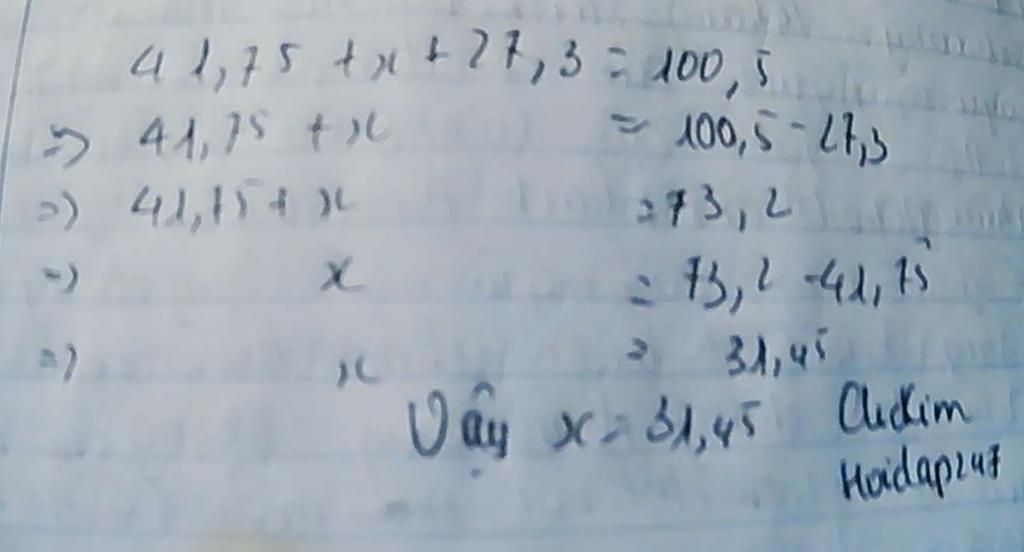 41,75 + x + 27,3 = 100,5
=> 41,75 + x = 100,5 - 27,3
=> 41,75 + x = 73,2
=> x = 73,2 - 41,75
=> x = 31,45
Vậy x = 31,45
Hoidap247